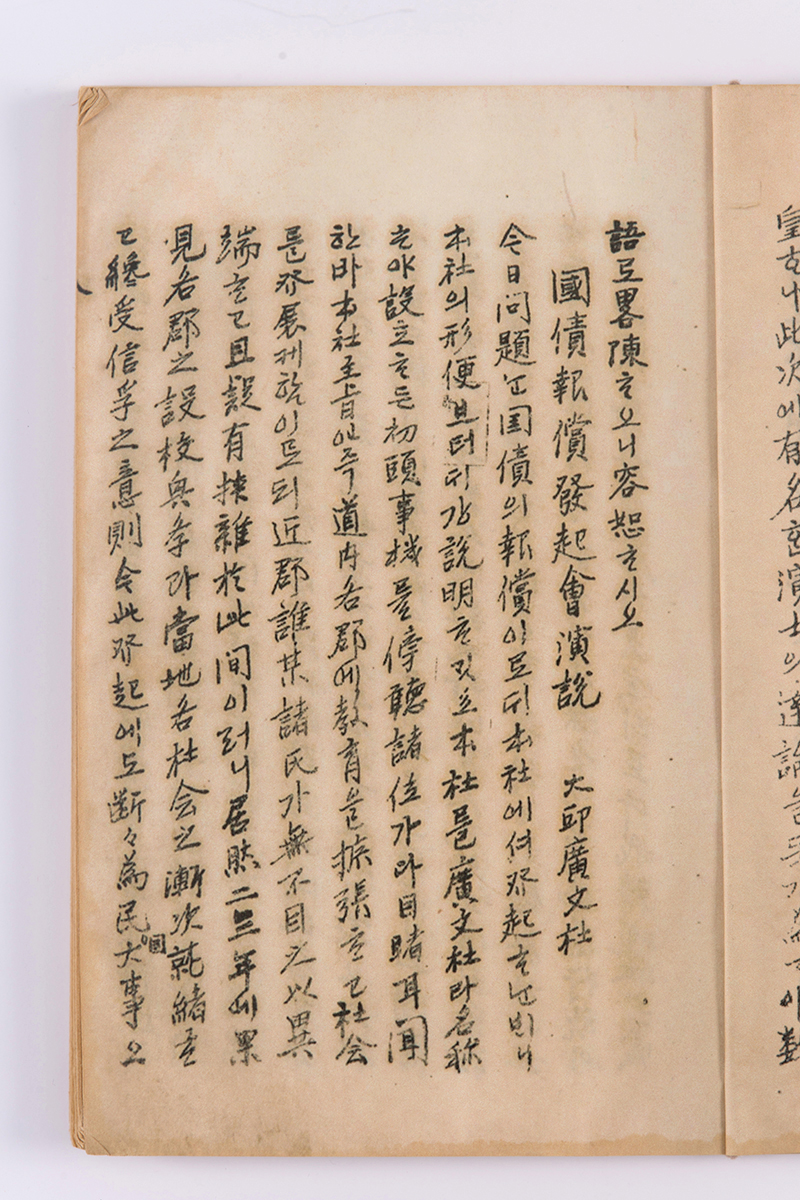 皇하나此次에有名하演士의達論
語로畧陳ᄒᆞ오니容恕ᄒᆞ시오
國債報償發起會演說 大邱廣文社
今日問題ᄂᆞᆫ国債의報償이로ᄃᆡ本社에셔發起ᄒᆞᄂᆞᆫᄇᆡ니
本社의形便브터ᄃᆡ강說明ᄒᆞ깃소本社를廣文社라名称
ᄒᆞ야設立ᄒᆞ든初頭事機를停聽諸位가다目睹耳聞
한바本社至旨인즉道內各郡에敎育을擴張ᄒᆞ고社会
를發展케ᄒᆞᆷ이로되近郡誰某諸氏가無不目之以異
端ᄒᆞ고且誤有挾雜於此間이러니居然二三年에果
見各郡之設校興學과當地各社会之漸次就緖ᄒᆞ
고纔受信孚之意則今此發起에도断々爲民國大事오